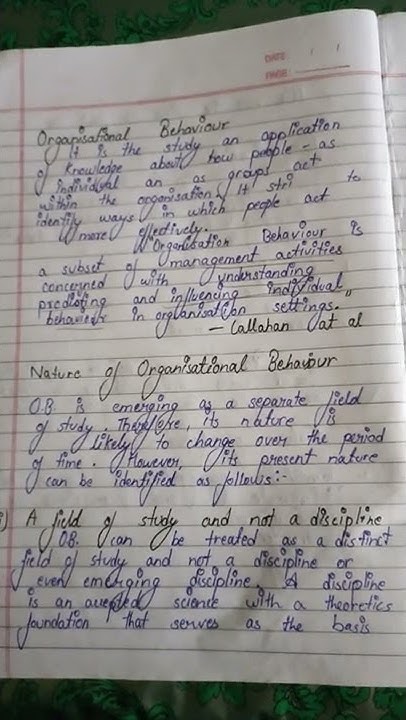 DATE: / /
PAGE:
Organisational Behaviour
It is the study an application
of knowledge about how people - as
individual an as groups act
within the organisation. It stri to
identify ways in which people act
more effectively.
"Organisation Behaviour is
a subset of management activities
concerned with understanding
predicting and influencing individual
behaviour in organisation settings."
- Callahan at al
Nature of Organisational Behaviour
O.B. is emerging as a separate field
of study. Therefore, its nature is
likely to change over the period
of time. However, its present nature
can be identified as follows:-
i) A field of study and not a discipline
O.B. can be treated as a distinct
field of study and not a discipline or
even emerging discipline. A discipline
is an accepted science with a theoretics
foundation that serves as the basis